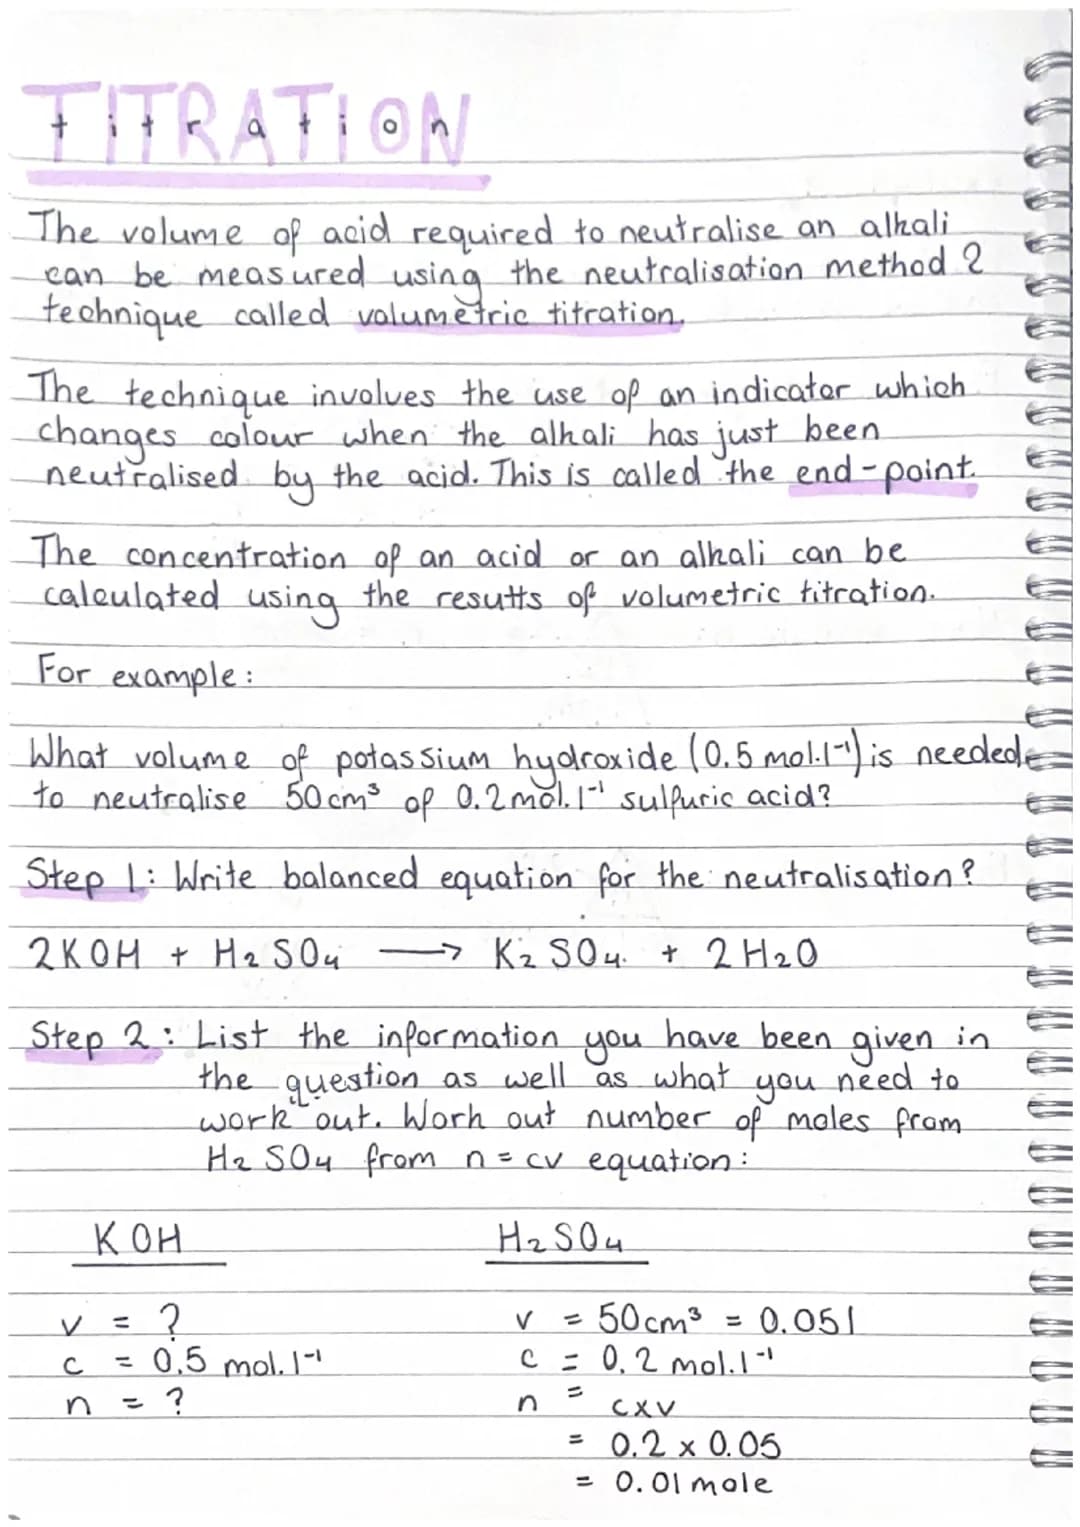 TITRATION
titration
The volume of acid required to neutralise an alkali
can be measured using the neutralisation method 2
technique called volumetric titration.
The technique involves the use of an indicator which
changes colour when the alkali has just been
neutralised by the acid. This is called the end-point.
The concentration of an acid or an alkali can be
calculated using the resutts of volumetric titration.
For example:
What volume of potassium hydroxide (0.5 mol.l⁻¹) is needed
to neutralise 50cm³ of 0.2mol.l⁻¹ sulfuric acid?
Step 1: Write balanced equation for the neutralisation?
2KOH + H₂SO₄ → K₂SO₄. + 2H₂O
Step 2: List the information you have been given in
the question as well as what you need to
work out. Work out number of moles from
H₂SO₄ from n = cv equation:
KOH H₂SO₄
v = ? v = 50cm³ = 0.05l
c = 0.5 mol.l⁻¹ c = 0.2 mol.l⁻¹
n = ? n = cxv
= 0.2 x 0.05
= 0.01 mole